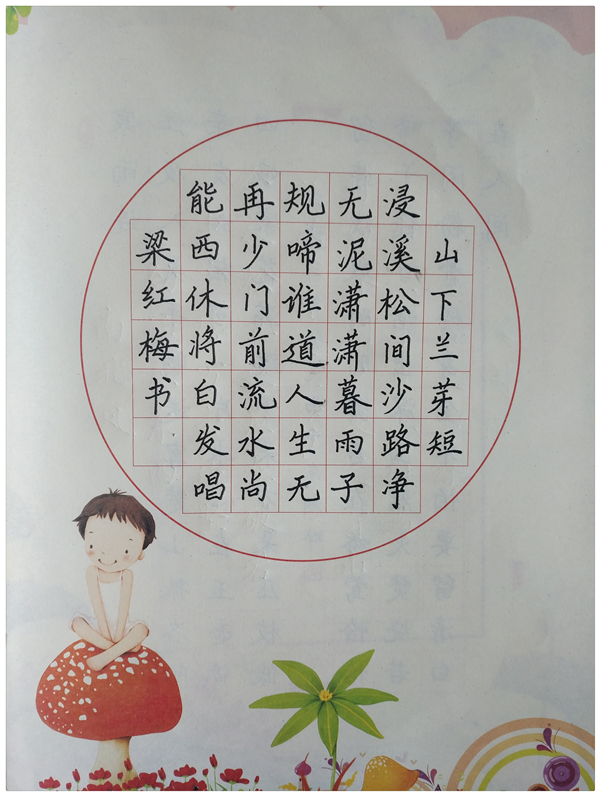 山下兰芽短
浸溪松间沙路净
无泥潇潇暮雨子
规啼谁道人生无
再少门前流水尚
能西休将白发唱
梁红梅书